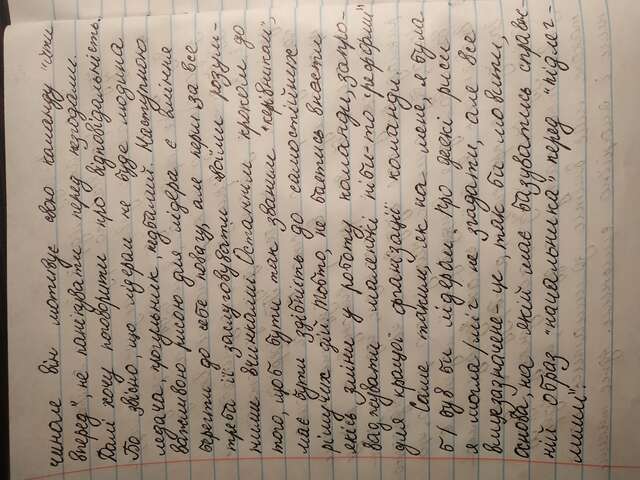 чинаме він мотивує свою команду "йти
вперед", не панікувати перед незгодами.
Далі хочу поговорити про відповідальність.
Бо звісно, що лідерам не буде людина
ледача, прогульник, недбалий. Наступною
важливою рисою для лідера є вміння
берегти до себе повагу, але перш за все
треба її заслуговувати своїми розум-
ними вчинками. Останнім кроком до
того, щоб бути так званим "керівником",
має бути здібність до самостійних
рішучих дій. Тобто, не боятись внести
якісь зміни у роботу команди, запро-
ваджувати маленькі ніби-то "реформи"
для кращої організації команди.
Саме таким, як на мене, я була
б/був би лідерам. Про деякі риси
я могла/міг не згадати, але все
вищезазначене- це, так би мовити,
основа, на якій має базуватись справж-
ній образ "начальника" перед "підлег-
лими".